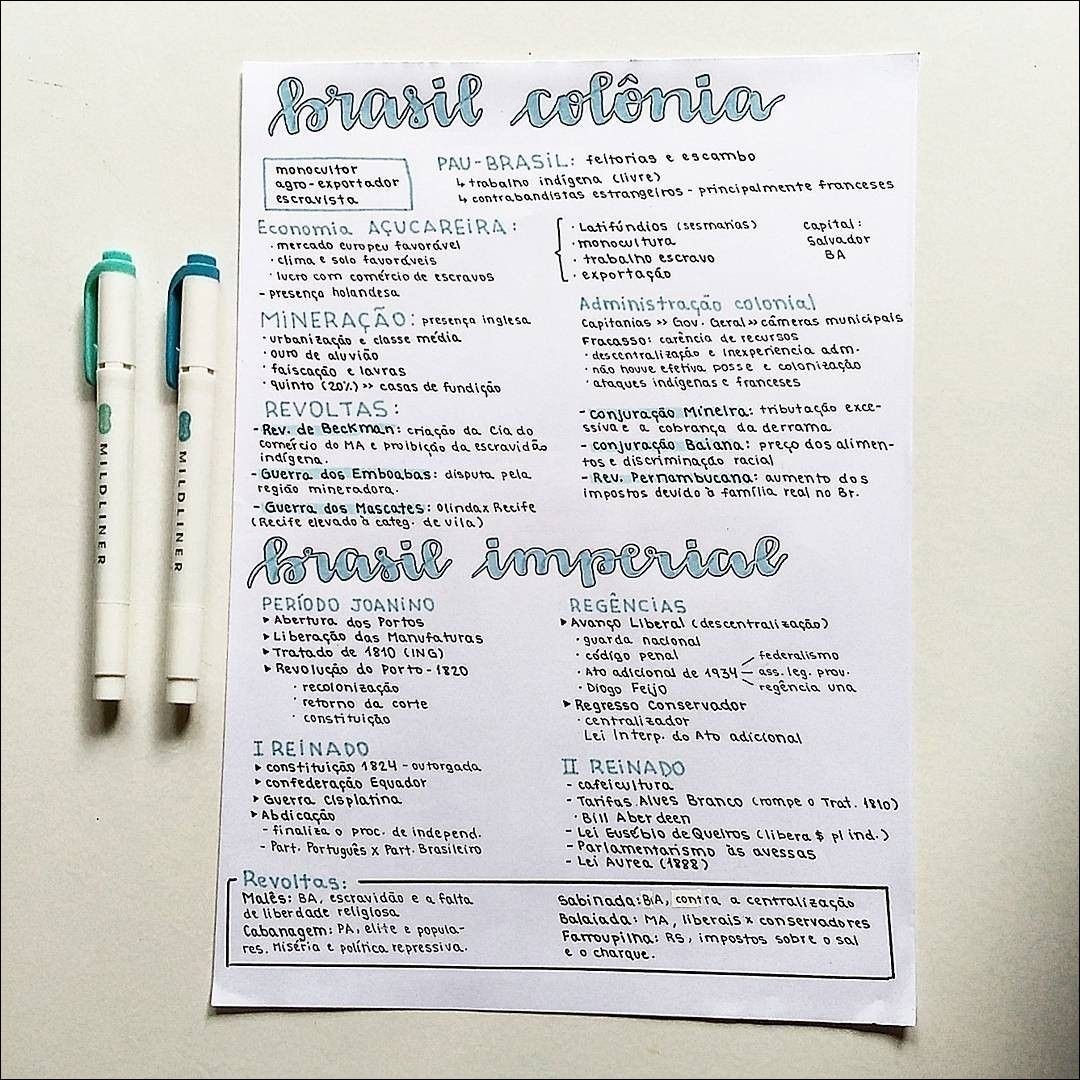 brasil colônia
monocultor
agro-exportador
escravista
PAU-BRASIL: feitorias e escambo
↳ trabalho indígena (livre)
↳ contrabandistas estrangeiros - principalmente franceses
Economia AÇUCAREIRA:
· mercado europeu favorável
· clima e solo favoráveis
· lucro com comércio de escravos
- presença holandesa
· Latifúndios (sesmarias)
· monocultura
· trabalho escravo
· exportação
capital:
Salvador
BA
MINERAÇÃO: presença inglesa
· urbanização e classe média
· ouro de aluvião
· faiscação e lavras
· quinto (20%) >> casas de fundição
Administração colonial
Capitanias >> Gov. Geral >> câmeras municipais
Fracasso: carência de recursos
· descentralização e inexperiencia adm.
· não houve efetiva posse e colonização
· ataques indígenas e franceses
REVOLTAS:
- Rev. de Beckman: criação da Cia do
comércio do MA e proibição da escravidão
indígena.
- Guerra dos Emboabas: disputa pela
região mineradora.
- Guerra dos Mascates: Olinda x Recife
(Recife elevado à categ. de vila)
- conjuração Mineira: tributação exce-
ssiva e a cobrança da derrama
- conjuração Baiana: preço dos alimen-
tos e discriminação racial
- Rev. Pernambucana: aumento dos
impostos devido à família real no Br.
brasil imperial
PERÍODO JOANINO
▸ Abertura dos Portos
▸ Liberação das Manufaturas
▸ Tratado de 1810 (ING)
▸ Revolução do Porto - 1820
· recolonização
· retorno da corte
· constituição
REGÊNCIAS
▸ Avanço Liberal (descentralização)
· guarda nacional
· código penal
· Ato adicional de 1934
federalismo
ass. leg. prov.
regência una
· Diogo Feijo
▸ Regresso Conservador
· centralizador
Lei Interp. do Ato adicional
I REINADO
▸ constituição 1824 - outorgada
▸ confederação Equador
▸ Guerra Cisplatina
▸ Abdicação
- finaliza o proc. de independ.
- Part. Português x Part. Brasileiro
II REINADO
- cafeicultura
- Tarifas Alves Branco (rompe o Trat. 1810)
· Bill Aberdeen
- Lei Eusébio de Queiros (libera $ p/ ind.)
- Parlamentarismo às avessas
- Lei Aurea (1888)
Revoltas:
Malês: BA, escravidão e a falta
de liberdade religiosa
Cabanagem: PA, elite e popula-
res. Miséria e política repressiva.
Sabinada: BA, contra a centralização
Balaiada: MA, liberais x conservadores
Farroupilha: RS, impostos sobre o sal
e o charque.
MILDLINER
MILDLINER